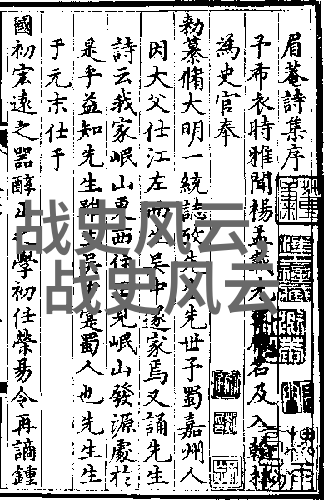 眉菴詩集序
予布衣時雅聞楊孟載先名及入翰林
為史官奉
勑纂脩大明一統誌攷先先世乎蜀嘉州人
因大父仕江左而吴中遂家焉又誦先生
詩云我家岷山更西住見岷山發源處於
是乎益知先生雖吴寔蜀人也先生生
于元末仕于
國初宏遠之器醇正學初任榮易令再謫鍾
战史风云
战史风云